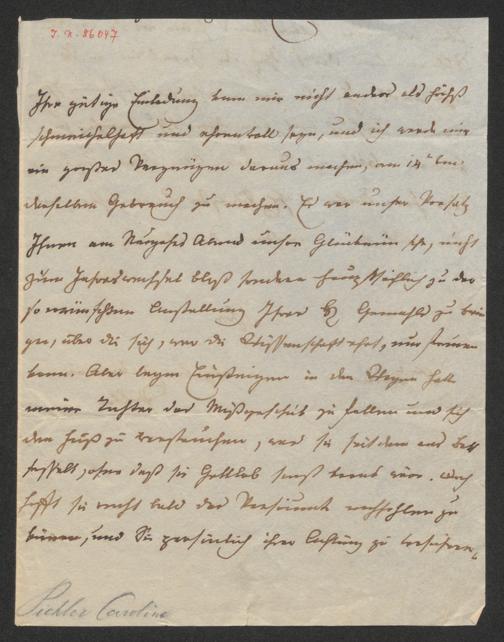 I. N. 86047
Ihre gütige Einladung kann mir nicht anders als höchst
schmeichelhaft und ehrenvoll seyn, und ich werde mir
ein großes Vergnügen daraus machen, am 14ten
derselben Gebrauch zu machen. Es war unser Vorsatz
Ihnen am Abend unsre Glückwünsche, nicht
zum Jahreswechsel bloß sondern hauptsächlich zu der
so erwünschten Anstellung Ihres H Gemahls zu brin
gen, über die sich, wer die Wissenschaft ehrt, nur freuen
kann. Aber beym Einsteigen in den Wagen hatte
meine Tochter das Mißgeschick zu fallen und sich
den Fuß zu verstauchen, was sie seitdem ans Bett
fesselt, ohne daß sie Gottlob sonst krank wäre. Doch
hofft sie recht bald das Versäumte nachhohlen zu
können, und Sie persönlich ihrer Achtung zu versichern.
Pichler Caroline